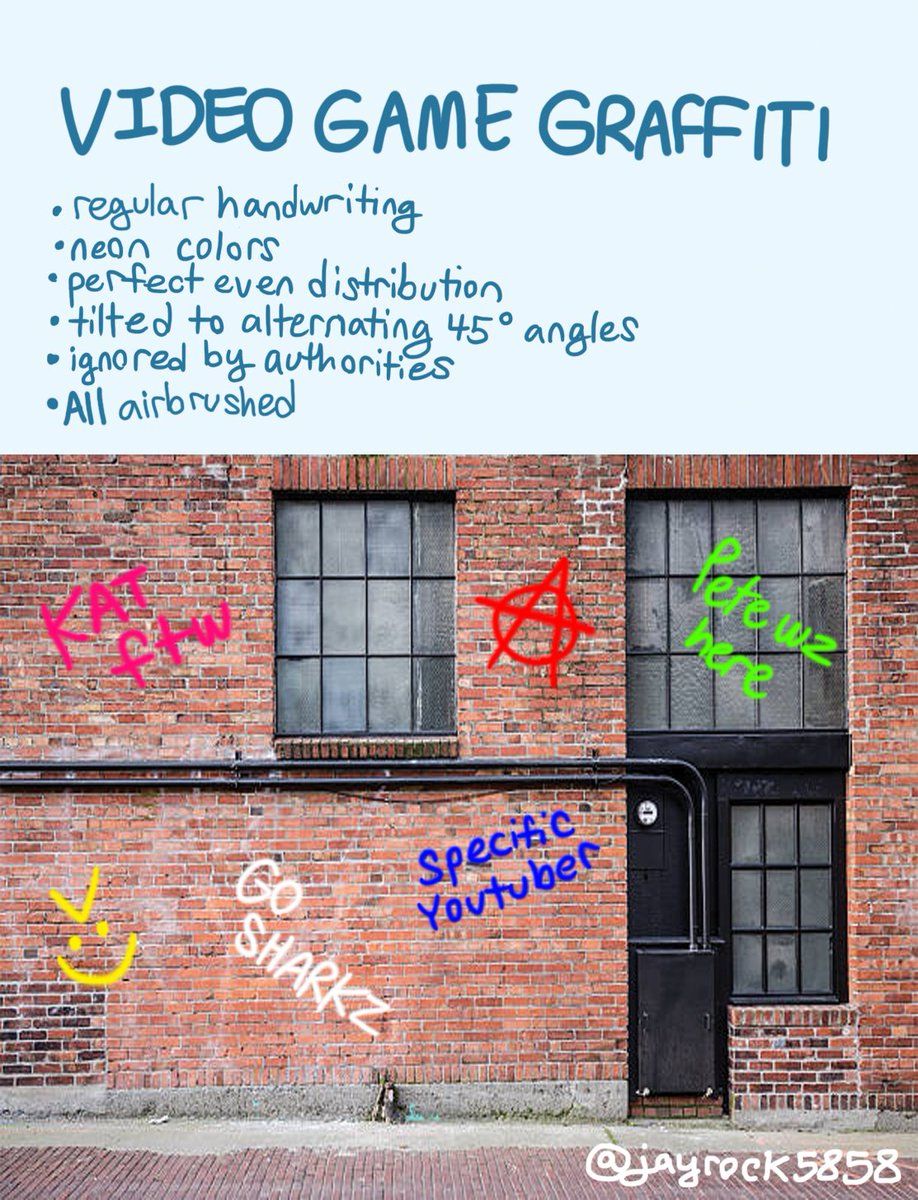 VIDEO GAME GRAFFITI
• regular handwriting
• neon colors
• perfect even distribution
• tilted to alternating 45° angles
• ignored by authorities
• All airbrushed
KAT
ftw
A
Pete wz
here
Specific
Youtuber
GO
SHARKZ
@jayrock5858